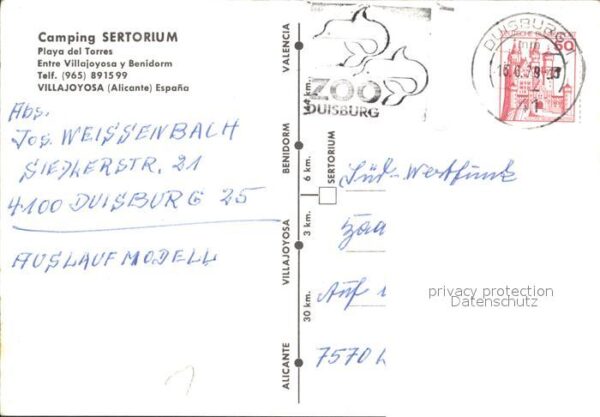 Camping SERTORIUM
Playa del Torres
Entre Villajoyosa y Benidorm
Telf. (965) 891599
VILLAJOYOSA (Alicante) España
Abs.
Jos. WEISSENBACH
SIEDLERSTR. 21
4100 DUISBURG 25
AUSLAUFMODELL
VALENCIA
144 km.
BENIDORM
6 km.
SERTORIUM
3 km.
VILLAJOYOSA
30 km.
ALICANTE
ZOO
DUISBURG
DUISBURG 1
60
Süd-Westfunk
Auf
7570
privacy protection
Datenschutz